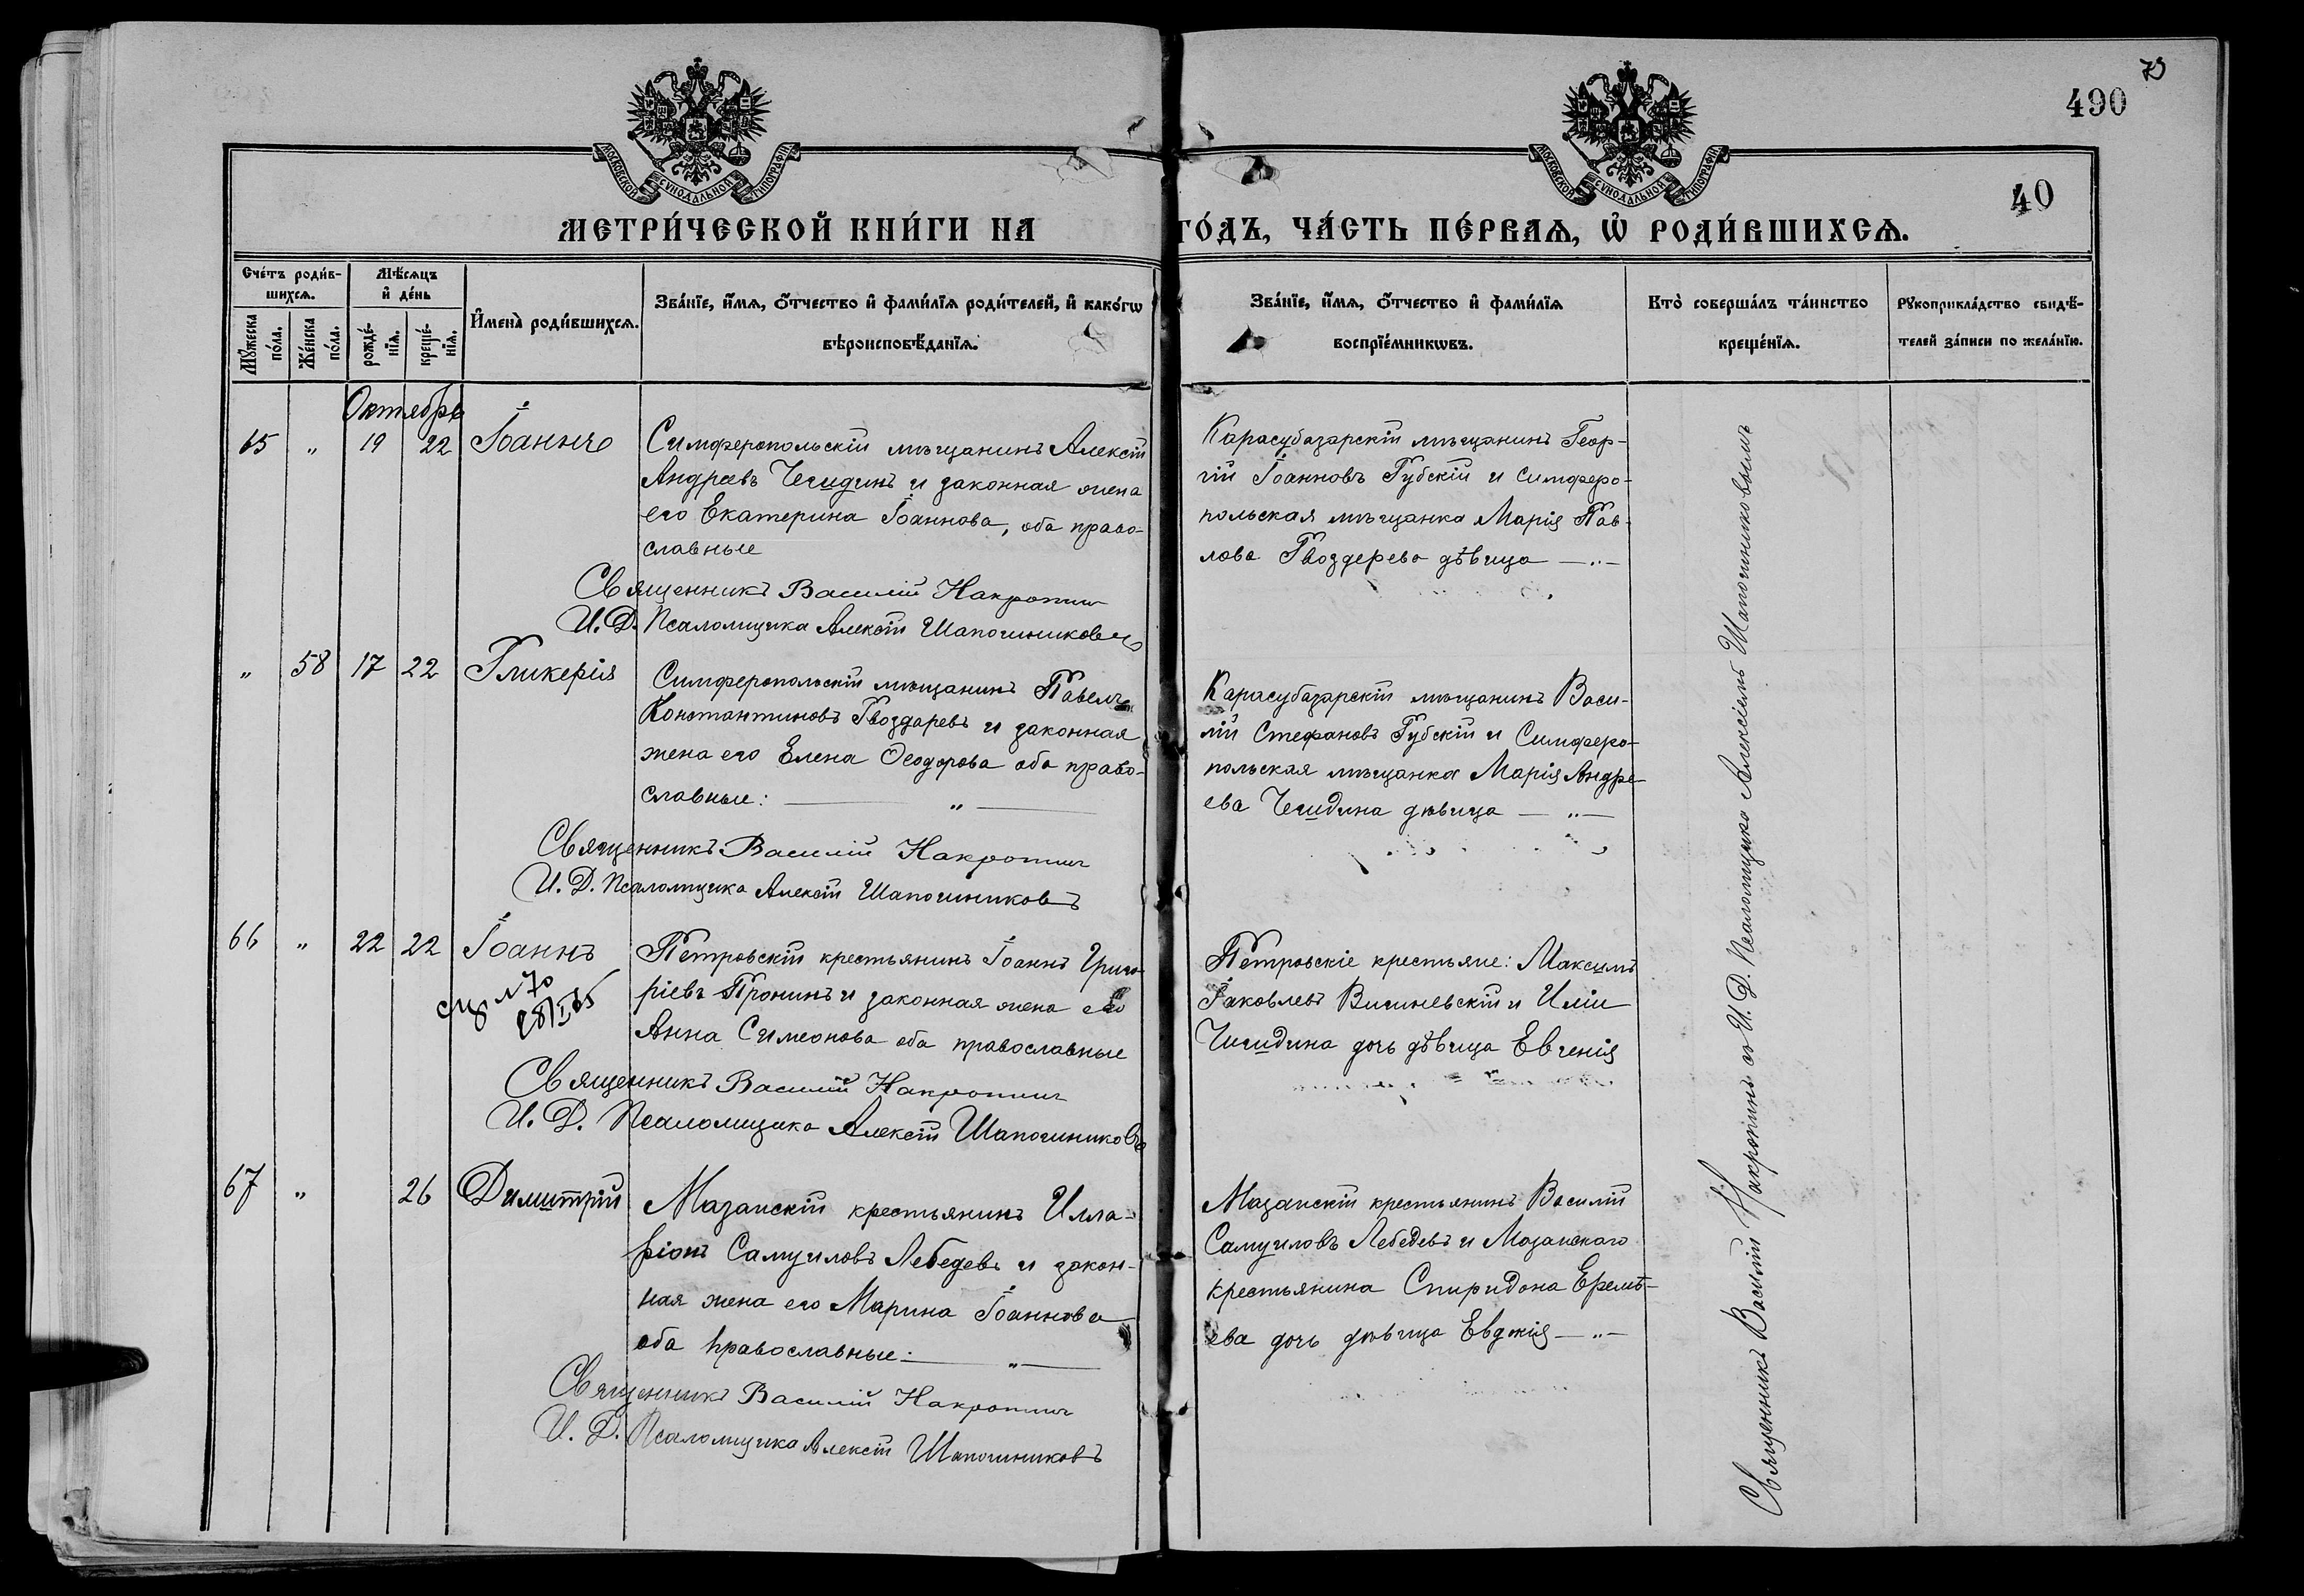 79
490
40
МОСКОВСКОЙ СѴНОДАЛЬНОЙ ТИПОГРАФІИ
МОСКОВСКОЙ СѴНОДАЛЬНОЙ ТИПОГРАФІИ
МЕТРИ́ЧЕСКОЙ КНИ́ГИ НА ГО́ДЪ, ЧА́СТЬ ПЕ́РВАѦ, Ѡ҆ РОДИ́ВШИХСѦ.
Сче́тъ роди́в-
шихсѧ.
Мѣ́сѧцъ
и҆ де́нь
Мꙋ́жеска
по́ла.
Же́нска
по́ла.
рожде́-
нїѧ.
креще́-
нїѧ.
И҆мена̀ роди́вшихсѧ.
Зва́нїе, и҆́мѧ, ѻ҆́тчество и҆ фами́лїѧ роди́телей, и҆ како́гѡ
вѣроисповѣ́данїѧ.
Зва́нїе, и҆́мѧ, ѻ҆́тчество и҆ фами́лїѧ
воспрїе́мникѡвъ.
Кто̀ соверша́лъ та́инство
креще́нїѧ.
Рꙋкоприкла́дство свидѣ́-
телей за́писи по жела́нїю.
Октябрь
65 „ 19 22 Іоаннъ
Симферопольскій мѣщанинъ Алексій
Андреевъ Чечидинъ и законная жена
его Екатерина Іоаннова, оба право-
славные
Священникъ Василій Накропин
И. Д. Псаломщика Алексій Шапошниковъ
Карасубазарскій мѣщанинъ Геор-
гій Іоанновъ Губскій и Симферо-
польская мѣщанка Марія Пав-
лова Гвоздерева дѣвица — „ —
„ 58 17 22 Гликерія
Симферопольскій мѣщанинъ Павелъ
Константиновъ Гвоздаревъ и законная
жена его Елена Ѳеодорова оба право-
славные: — „ —
Священникъ Василій Накропин
И. Д. Псаломщика Алексій Шапошниковъ
Карасубазарскій мѣщанинъ Васи-
лій Стефановъ Губскій и Симферо-
польская мѣщанка Марія Андре-
ева Чечидина дѣвица — „ —
66 „ 22 22 Іоаннъ
№ 70
28/I 65
Петровскій крестьянинъ Іоаннъ Григо-
ріевъ Пронинъ и законная жена его
Анна Симеонова оба православные
Священникъ Василій Накропин
И. Д. Псаломщика Алексій Шапошниковъ
Петровскіе крестьяне: Максимъ
Іаковлевъ Вишневскій и Иліи
Чичидина дочь дѣвица Евгенія
67 „ 26 Димитрій
Мазанскій крестьянинъ Илла-
ріонъ Самуиловъ Лебедевъ и закон-
ная жена его Марина Іоаннова
оба православные: — „ —
Священникъ Василій Накропин
И. Д. Псаломщика Алексій Шапошниковъ
Мазанскій крестьянинъ Василій
Самуиловъ Лебедевъ и Мазанскаго
крестьянина Спиридона Еремѣ-
ева дочь дѣвица Евдокія — „ —
Священникъ Василій Накропинъ съ И. Д. Псаломщика Алексіемъ Шапошниковымъ